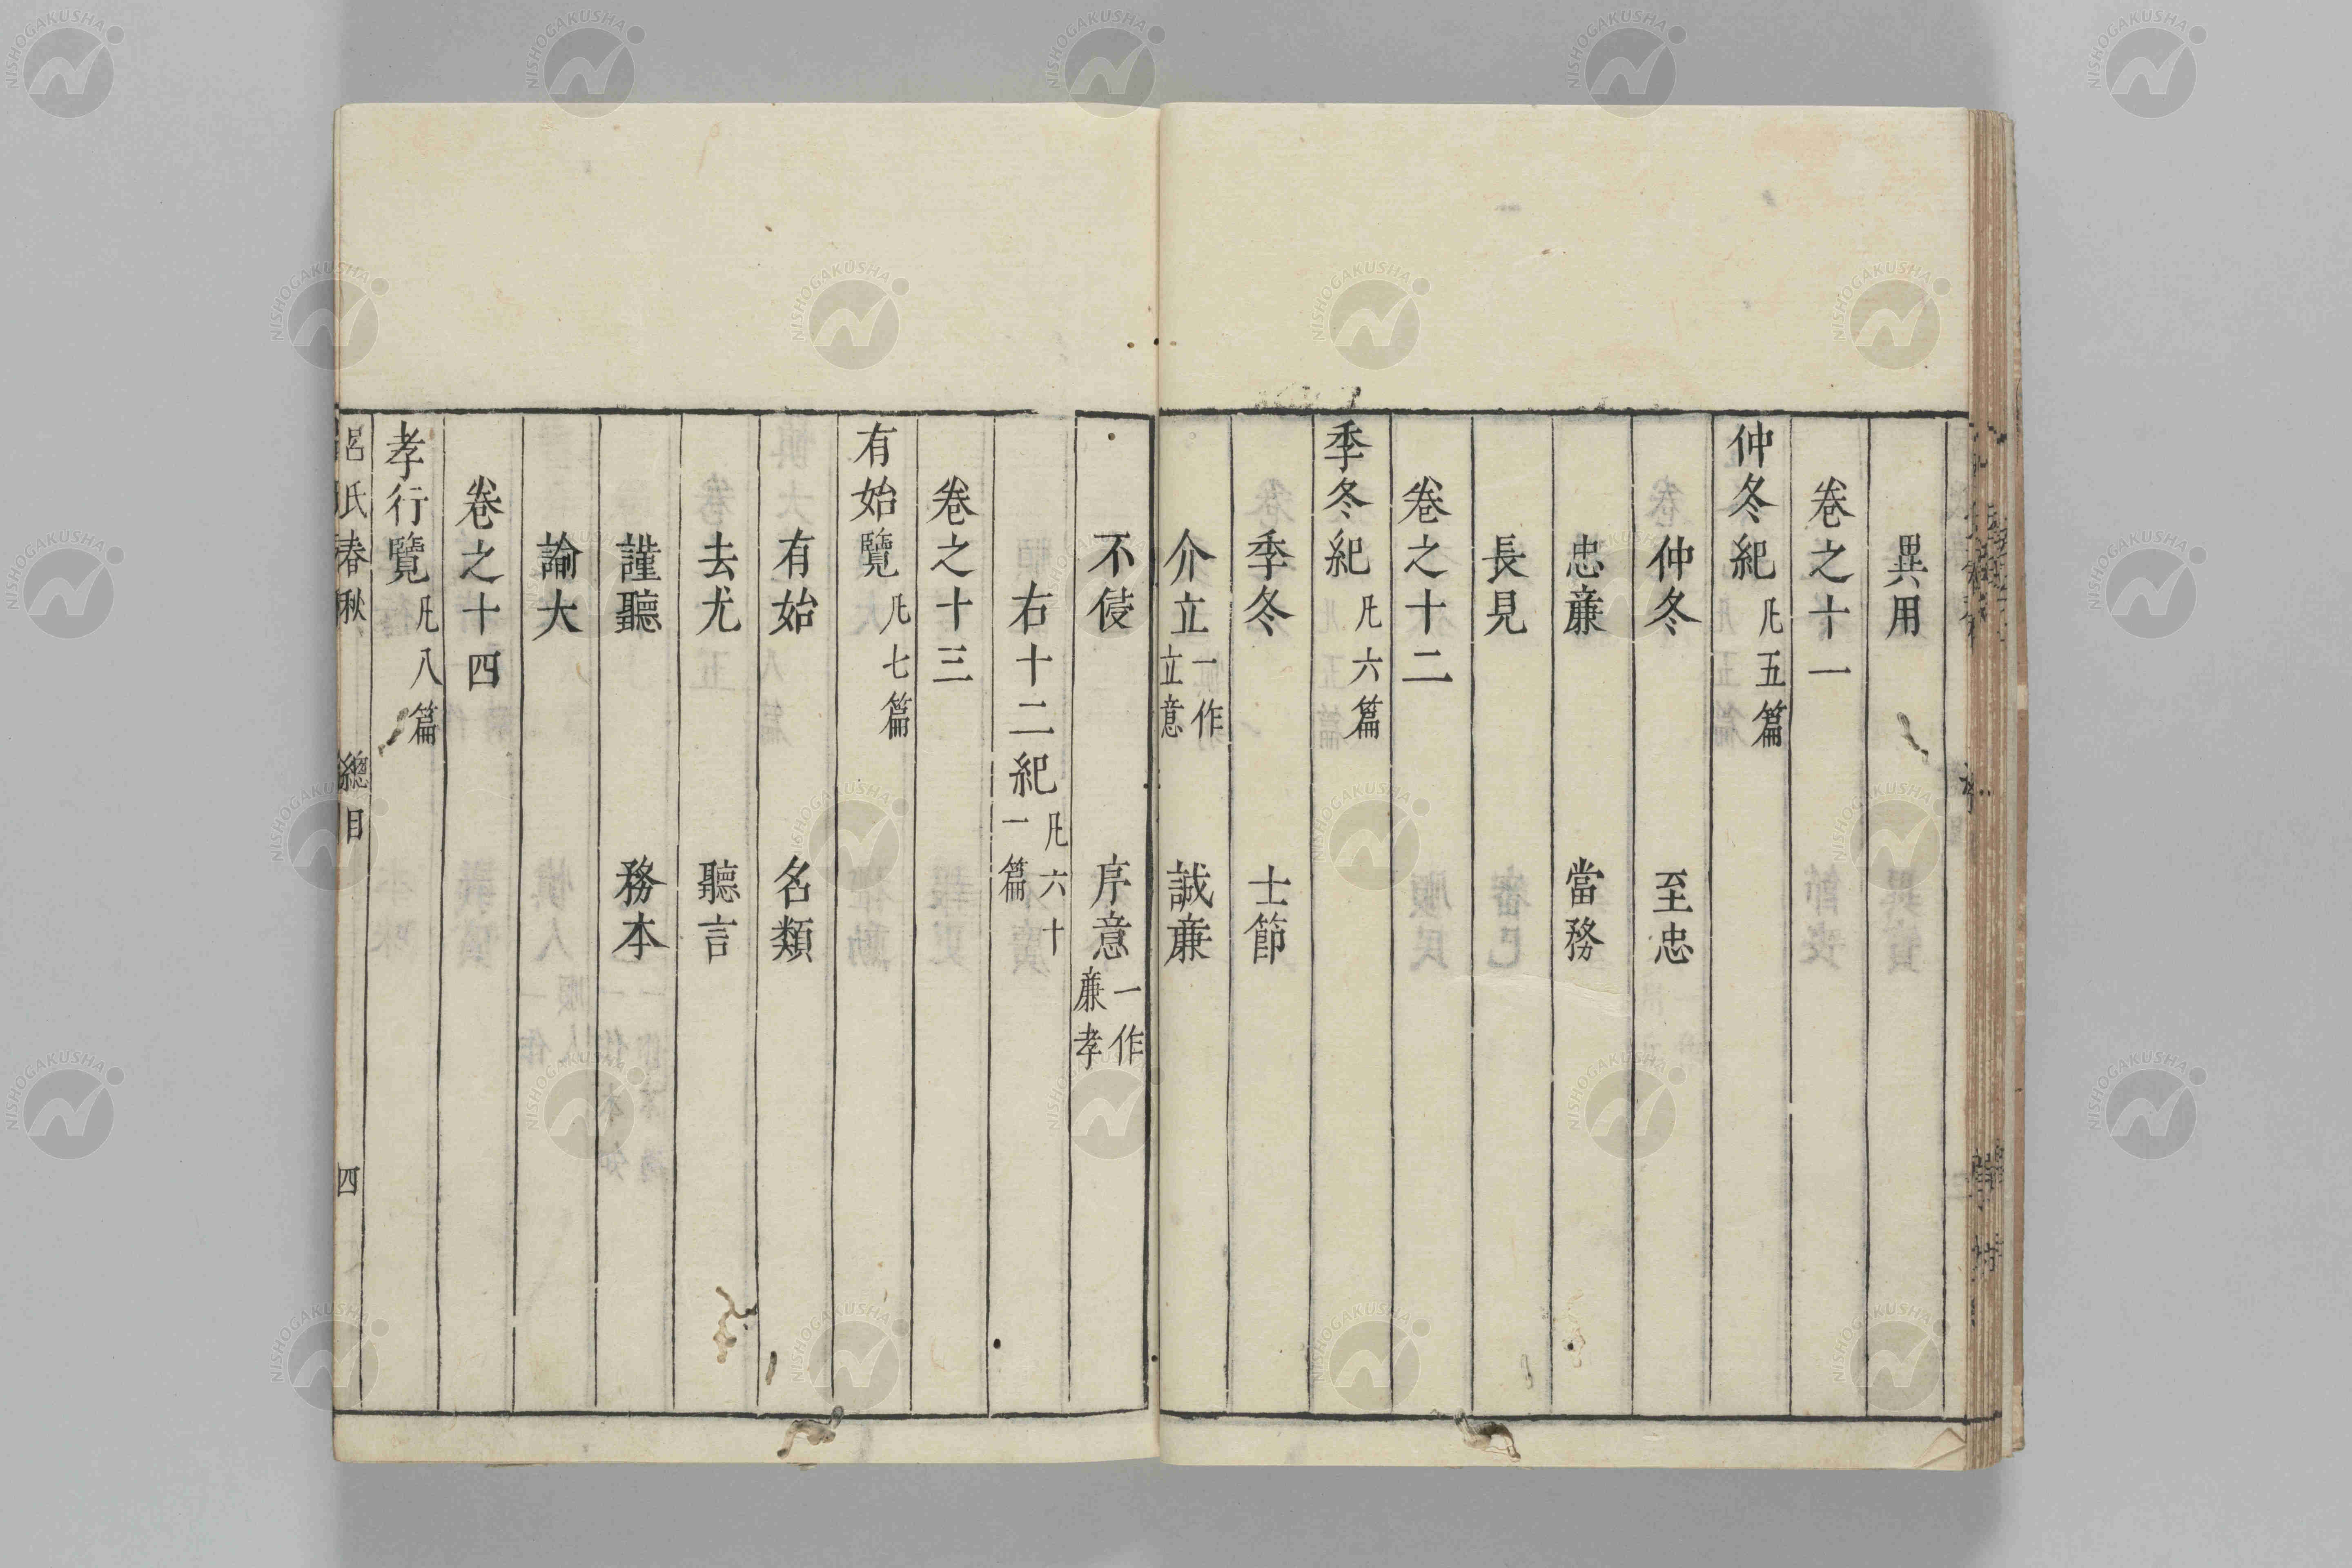 異用
卷之十一
仲冬紀凡五篇
仲冬 至忠
忠亷 當務
長見
卷之十二
季冬紀凡六篇
季冬 士節
介立一作立意 誠亷
不侵 序意一作亷孝
右十二紀凡六十一篇
卷之十三
有始覽凡七篇
有始 名類
去尤 聽言
謹聽 務本
諭大
卷之十四
孝行覽凡八篇
呂氏春秋 總目 四
NISHOGAKUSHA